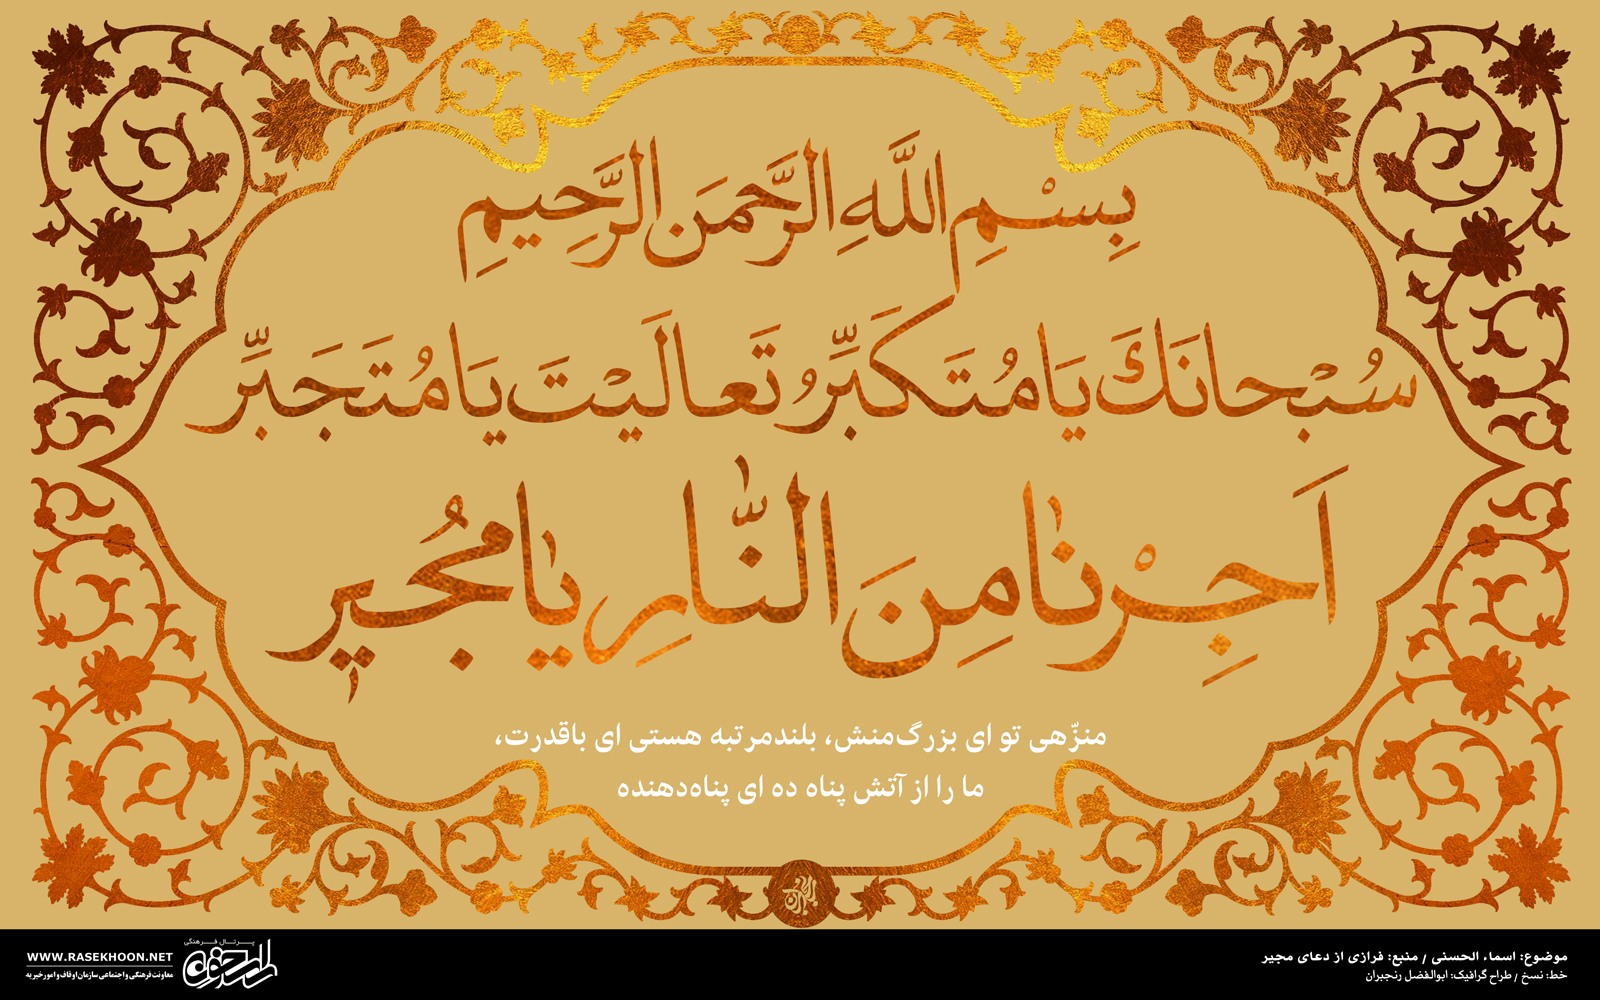 بِسْمِ اللَّهِ الرَّحمَنِ الرَّحِیمِ
سُبْحانَكَ یَا مُتَکَبِّرُ تَعالَیْتَ یَا مُتَجَبِّر
اَجِرْنٰا مِنَ النّٰارِ یٰا مُجُیٖر
منزّهی تو ای بزرگ‌منش، بلندمرتبه هستی ای باقدرت،
ما را از آتش پناه ده ای پناه‌دهنده
موضوع: اسماء الحسنی / منبع: فرازی از دعای مجیر
خط: نسخ / طراح گرافیک: ابوالفضل رنجبران
پرتال فرهنگی
راسخون
WWW.RASEKHOON.NET
معاونت فرهنگی و اجتماعی سازمان اوقاف و امور خیریه